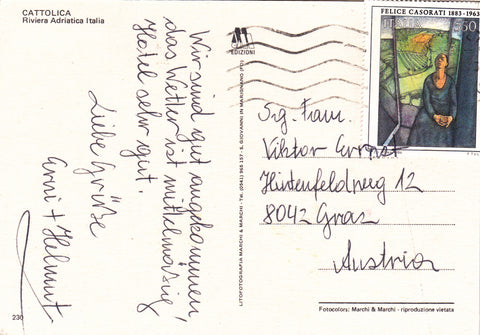 CATTOLICA
Riviera Adriatica Italia
Wir sind gut angekommen,
das Wetter ist mittelmäßig!
Hotel sehr gut.
Liebe Grüße
Erni + Helmut
230
EDIZIONI
LITOFOTOGRAFIA MARCHI & MARCHI - Tel. (0541) 965 157 - S. GIOVANNI IN MARIGNANO (FO)
FELICE CASORATI 1883-1963
ITALIA 550
Sg. Fam.
Viktor Ernst
Hintenfeldweg 12
8042 Graz
Austria
Fotocolors: Marchi & Marchi - riproduzione vietata